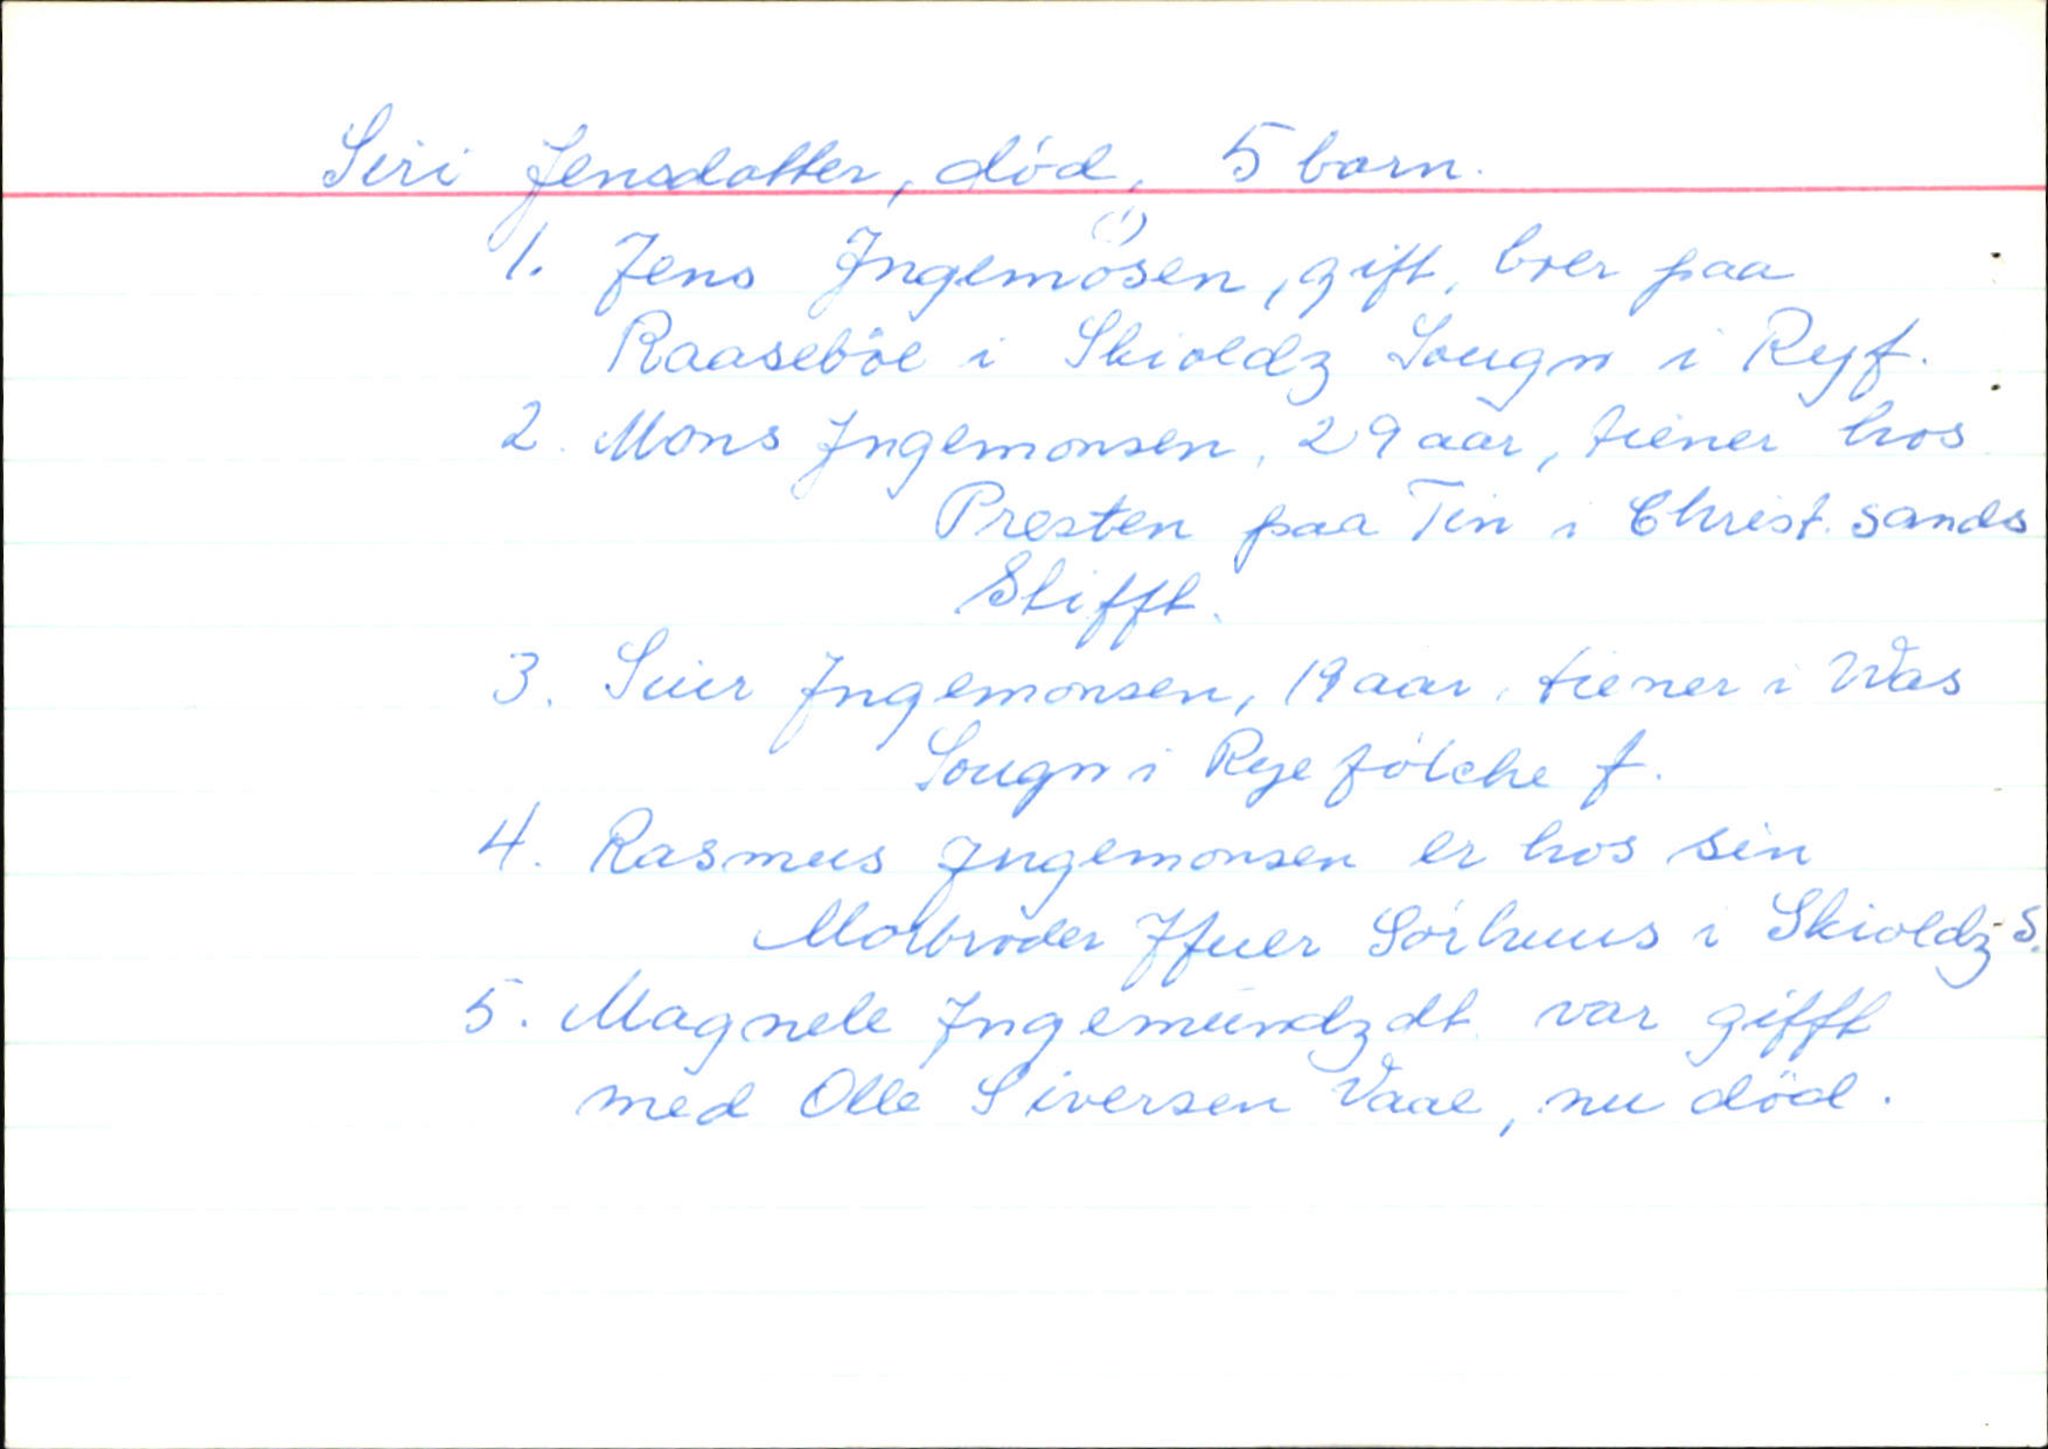 Siri Jensdatter, död, 5 barn.
(!)
1. Jens Ingemösen, gift, boer paa
Raaseböe i Skioldz Sougn i Ryf.
2. Mons Ingemonsen, 29 aar, tiener hos
Presten paa Tin i Christ. sands
Stifft.
3. Siur Ingemonsen, 19 aar, tiener i Was
Sougn i Rye fölche f.
4. Rasmus Ingemonsen er hos sin
Morbroder Ifuer Sörhuus i Skioldz S.
5. Magnele Ingemundzdt. var gifft
med Olle Siversen Vaae, nu död.